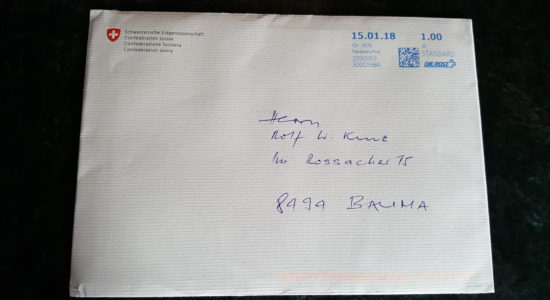 Schweizerische Eidgenossenschaft
Confédération suisse
Confederazione Svizzera
Confederaziun svizra
15.01.18
1.00
A
STANDARD
2090059
50001684
DIE POST
Herrn
Rolf W. Kunz
Im Rossacher 15
8494 BAUMA